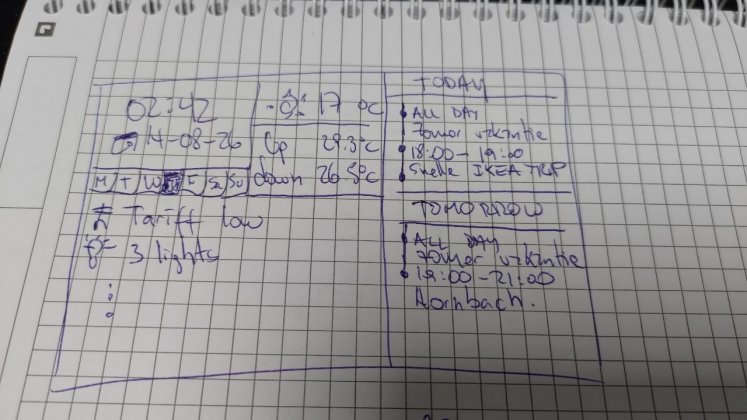 02:42
14-08-26
M T W F Sa Su
Tariff low
3 lights
17 °C
Up 29.3°C
down 26.5°C
TODAY
ALL DAY
Zomer vakantie
18:00 - 19:00
Snelle IKEA TRIP
TOMORROW
ALL DAY
Zomer vakantie
19:00 - 21:00
Hornbach.